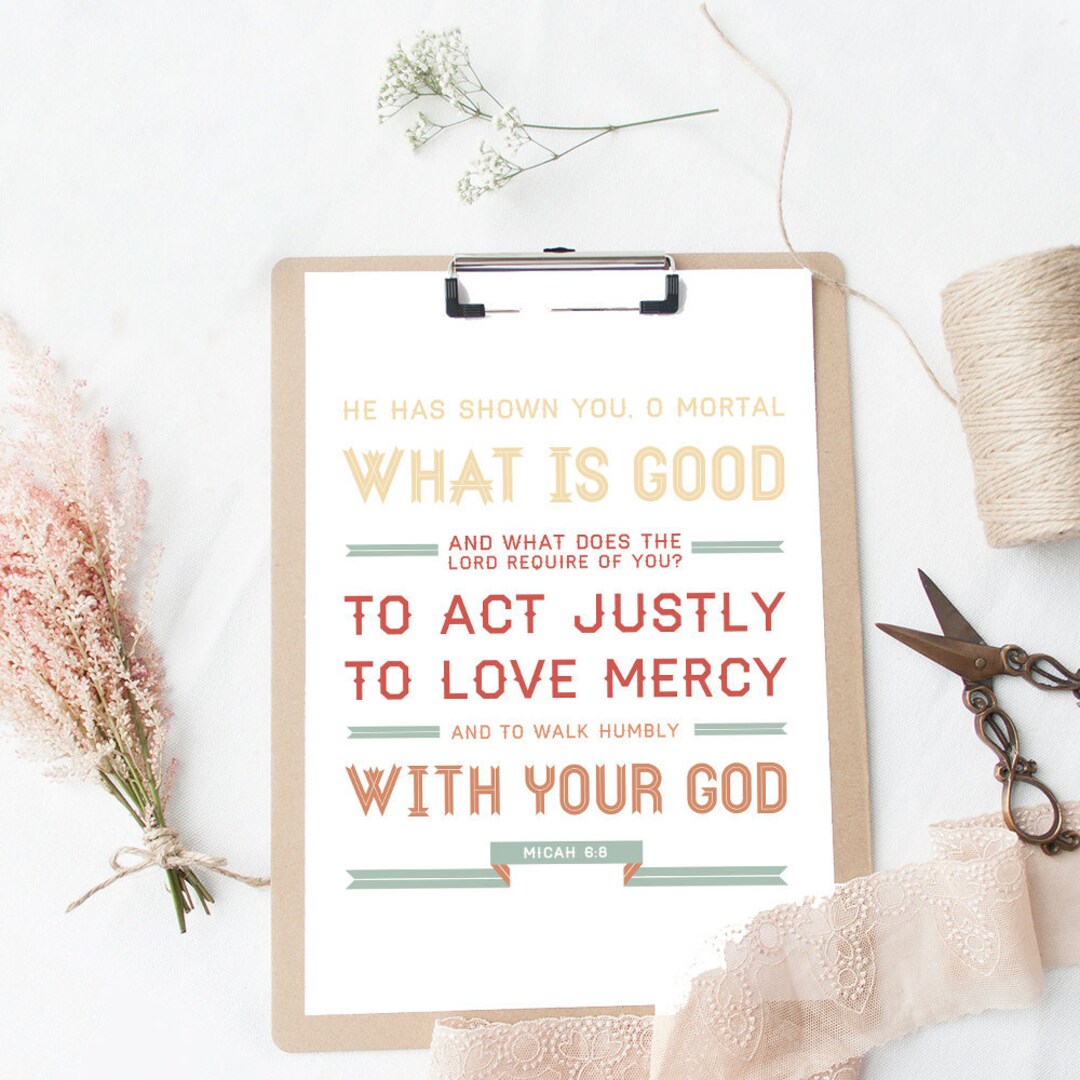 HE HAS SHOWN YOU, O MORTAL
WHAT IS GOOD
AND WHAT DOES THE
LORD REQUIRE OF YOU?
TO ACT JUSTLY
TO LOVE MERCY
AND TO WALK HUMBLY
WITH YOUR GOD
MICAH 6:8